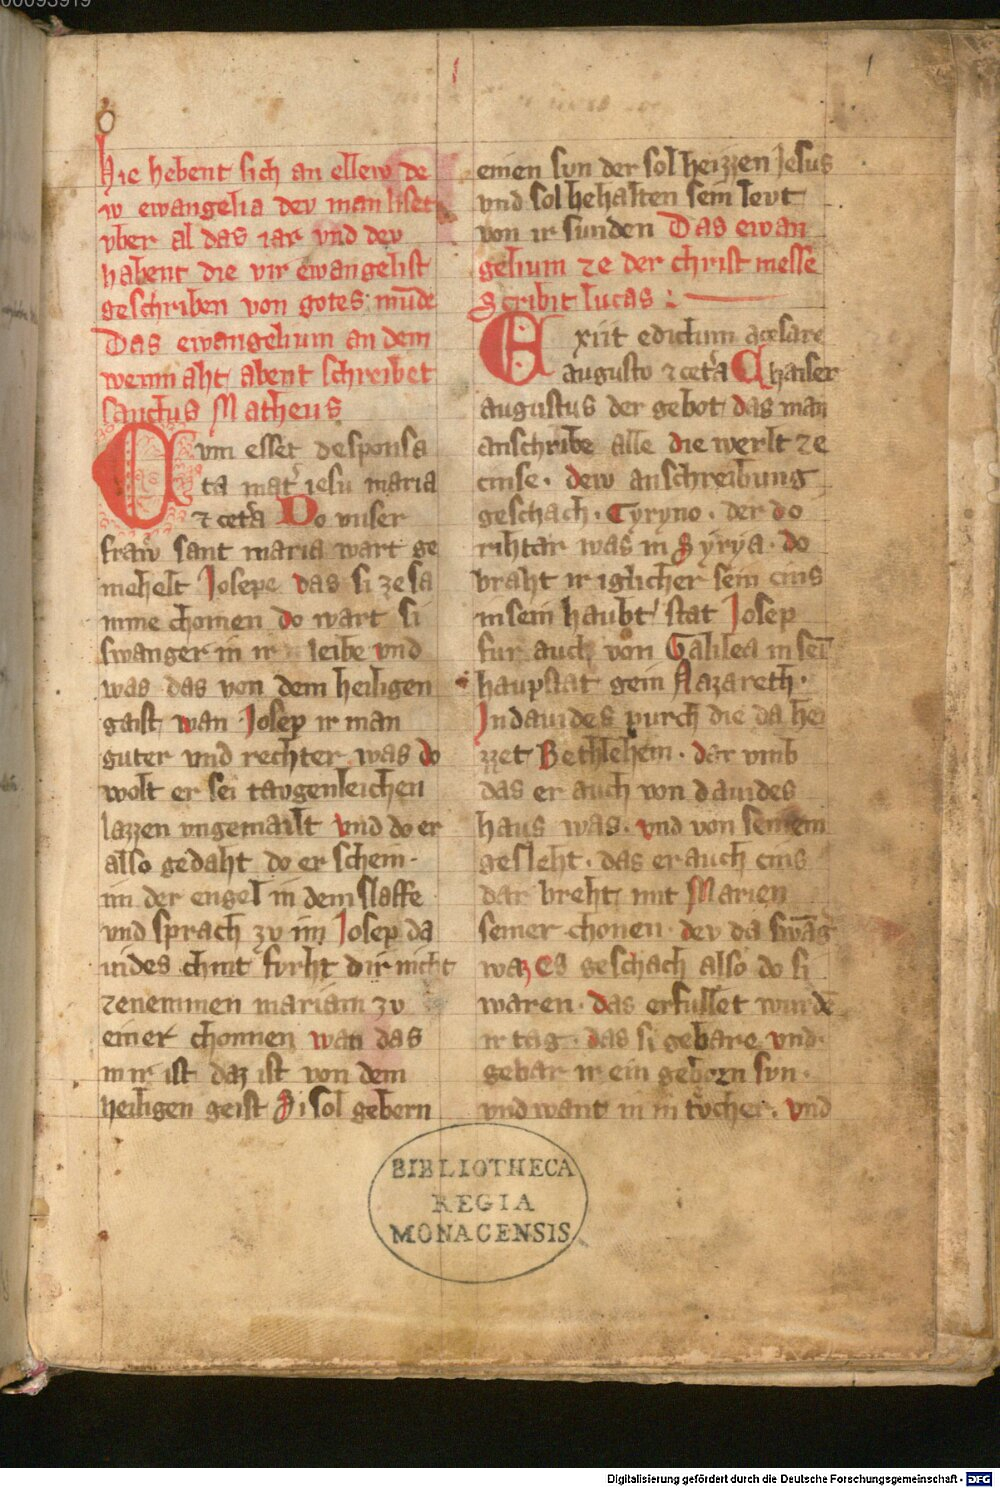 00093919
1
1
hie hebent sich an ellew de
w ewangelia dev man liset
vber al das iar vnd dev
habent die vir ewangelist
geschriben von gotes mvnde
Das ewangelium an dem
weinnaht abent schreibet
sanctus Matheus
Cvm esset desponsa
ta mat͛ iesu maria
⁊ cet͛a Do vnser
fraw sant maria wart ge
mehelt Josepe das si ze sa
mme chomen do wart si
swanger in ir leibe vnd
was das von dem heiligen
gaist wan Josep ir man
guter vnd rechter was do
wolt er sei taugenleichen
lazzen vngemailt vnd do er
also gedaht do er schein
im der engel in dem slaffe
vnd sprach zv im Josep da
uides chint fvrht dir nicht
zenemmen mariam zv
einer chonnen wan das
in ir ist daz ist von dem
heiligen geist Si sol gebern
einen svn der sol heizzen Jesus
vnd sol behalten sein levt
von ir sunden Das ewan
gelium ze der christ messe
Scribit lucas :
Exiit edictum a cesare
augusto ⁊ cet͛a Chaiser
augustus der gebot das man
anschribe alle die werlt ze
cinse . dew anschreibung
geschach . Cyryno . der do
rihtar was in Syrya . do
braht ir iglicher sein cins
in sein haubt stat Josep
fur auch von Galilea in sei͞
haupstat gein Nazareth .
In dauides purch die da hei
zzet Bethlehem . dar vmb
das er auch von dauides
haus was . vnd von seinem
gesleht . das er auch cins
dar breht mit Marien
seiner chonen . dev da swa͞g͛
waz Es geschach also do si
waren . das erfullet wurde͞
ir tag . das si gebare vnd
gebar ir ein geborn svn .
vnd want in in tvͦcher . vnd
BIBLIOTHECA
REGIA
MONACENSIS
Digitalisierung gefördert durch die Deutsche Forschungsgemeinschaft - DFG